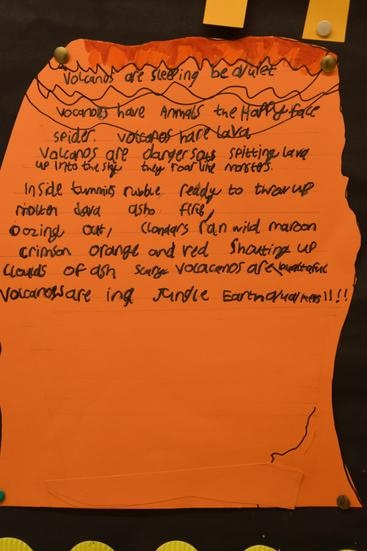 Volcanos are sleeping be quiet
vocanos have Animals the Happy face
spider. volcanos have lava
volcanos are dangersous spitting lava
up into the sky they roar like monsters.
Inside tummis rubble ready to throw up
molten lava ash fire,
oozing out, ran wild maroon
crimson orange and red Shouting up
Clouds of ash volacanos are
Volcanos are ing Jungle !!!!